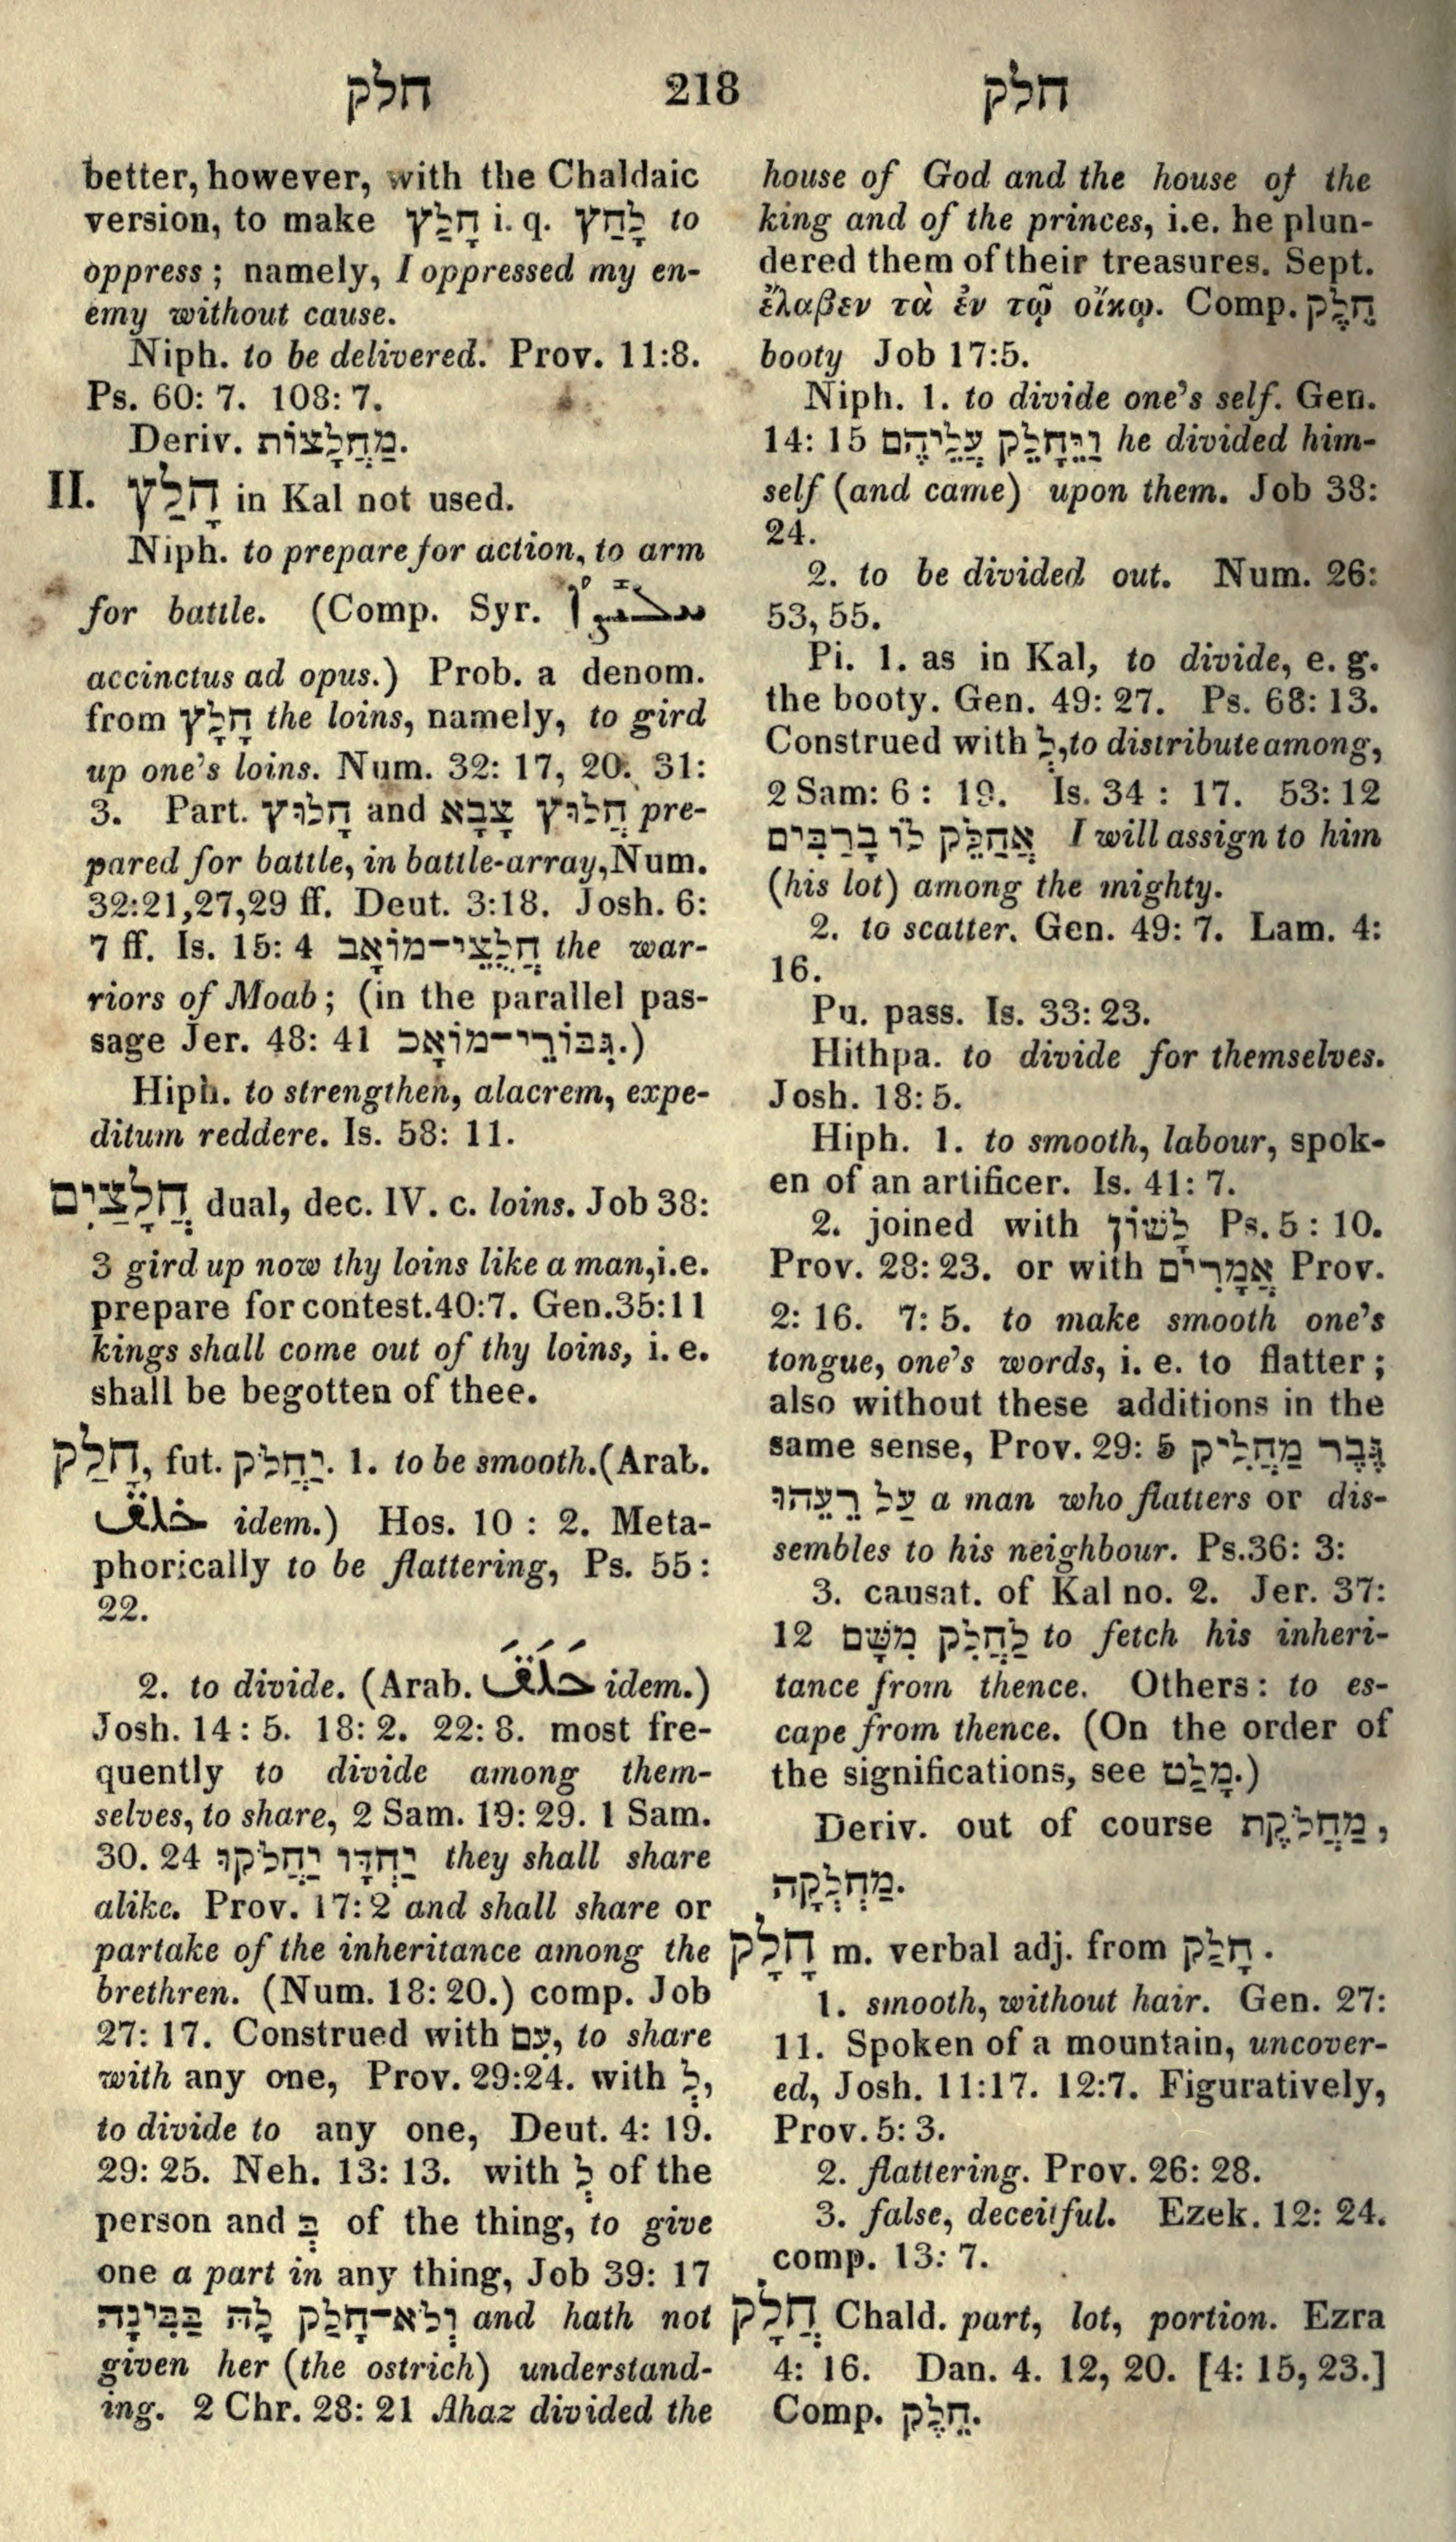 חלק 218 חלק
better, however, with the Chaldaic
version, to make חָלַץ i. q. לָחַץ to
oppress; namely, I oppressed my en-
emy without cause.
Niph. to be delivered. Prov. 11:8.
Ps. 60: 7. 108: 7.
Deriv. מַחֲלָצוֹת.
II. חָלַץ in Kal not used.
Niph. to prepare for action, to arm
for battle. (Comp. Syr.
accinctus ad opus.) Prob. a denom.
from חָלָץ the loins, namely, to gird
up one's loins. Num. 32: 17, 20. 31:
3. Part. חָלוּץ and חֲלוּץ צָבָא pre-
pared for battle, in battle-array, Num.
32:21,27,29 ff. Deut. 3:18. Josh. 6:
7 ff. Is. 15: 4 חֲלֻצֵי־מוֹאָב the war-
riors of Moab; (in the parallel pas-
sage Jer. 48: 41 גִּבּוֹרֵי־מוֹאָב.)
Hiph. to strengthen, alacrem, expe-
ditum reddere. Is. 58: 11.
חֲלָצַיִם dual, dec. IV. c. loins. Job 38:
3 gird up now thy loins like a man, i.e.
prepare for contest. 40:7. Gen. 35:11
kings shall come out of thy loins, i. e.
shall be begotten of thee.
חָלַק, fut. יַחֲלֹק. 1. to be smooth. (Arab.
خلق idem.) Hos. 10 : 2. Meta-
phorically to be flattering, Ps. 55:
22.
2. to divide. (Arab. خَلَقَ idem.)
Josh. 14: 5. 18: 2. 22: 8. most fre-
quently to divide among them-
selves, to share, 2 Sam. 19: 29. 1 Sam.
30. 24 יַחְדָּו יַחֲלֹקוּ they shall share
alike. Prov. 17: 2 and shall share or
partake of the inheritance among the
brethren. (Num. 18: 20.) comp. Job
27: 17. Construed with עִם, to share
with any one, Prov. 29:24. with לְ,
to divide to any one, Deut. 4: 19.
29: 25. Neh. 13: 13. with לְ of the
person and בְּ of the thing, to give
one a part in any thing, Job 39: 17
וְלֹא־חָלַק לָהּ בַּבִּינָה and hath not
given her (the ostrich) understand-
ing. 2 Chr. 28: 21 Ahaz divided the
house of God and the house of the
king and of the princes, i.e. he plun-
dered them of their treasures. Sept.
ἔλαβεν τὰ ἐν τῷ οἴκῳ. Comp. חֵלֶק
booty Job 17:5.
Niph. 1. to divide one's self. Gen.
14: 15 וַיֵּחָלֵק עֲלֵיהֶם he divided him-
self (and came) upon them. Job 38:
24.
2. to be divided out. Num. 26:
53, 55.
Pi. 1. as in Kal, to divide, e. g.
the booty. Gen. 49: 27. Ps. 68: 13.
Construed with לְ, to distribute among,
2 Sam: 6 : 19. Is. 34 : 17. 53: 12
אֲחַלֵּק לוֹ בָרַבִּים I will assign to him
(his lot) among the mighty.
2. to scatter. Gen. 49: 7. Lam. 4:
16.
Pu. pass. Is. 33: 23.
Hithpa. to divide for themselves.
Josh. 18: 5.
Hiph. 1. to smooth, labour, spok-
en of an artificer. Is. 41: 7.
2. joined with לָשׁוֹן Ps. 5 : 10.
Prov. 28: 23. or with אֲמָרִים Prov.
2: 16. 7: 5. to make smooth one's
tongue, one's words, i. e. to flatter;
also without these additions in the
same sense, Prov. 29: 5 גֶּבֶר מַחֲלִיק
עַל רֵעֵהוּ a man who flatters or dis-
sembles to his neighbour. Ps. 36: 3:
3. causat. of Kal no. 2. Jer. 37:
12 לַחֲלִק מִשָּׁם to fetch his inheri-
tance from thence. Others: to es-
cape from thence. (On the order of
the significations, see מָלַט.)
Deriv. out of course מַחֲלֹקֶת,
מַחְלְקָה.
חָלָק m. verbal adj. from חָלַק.
1. smooth, without hair. Gen. 27:
11. Spoken of a mountain, uncover-
ed, Josh. 11:17. 12:7. Figuratively,
Prov. 5: 3.
2. flattering. Prov. 26: 28.
3. false, deceitful. Ezek. 12: 24.
comp. 13: 7.
חֲלָק Chald. part, lot, portion. Ezra
4: 16. Dan. 4. 12, 20. [4: 15, 23.]
Comp. חֵלֶק.